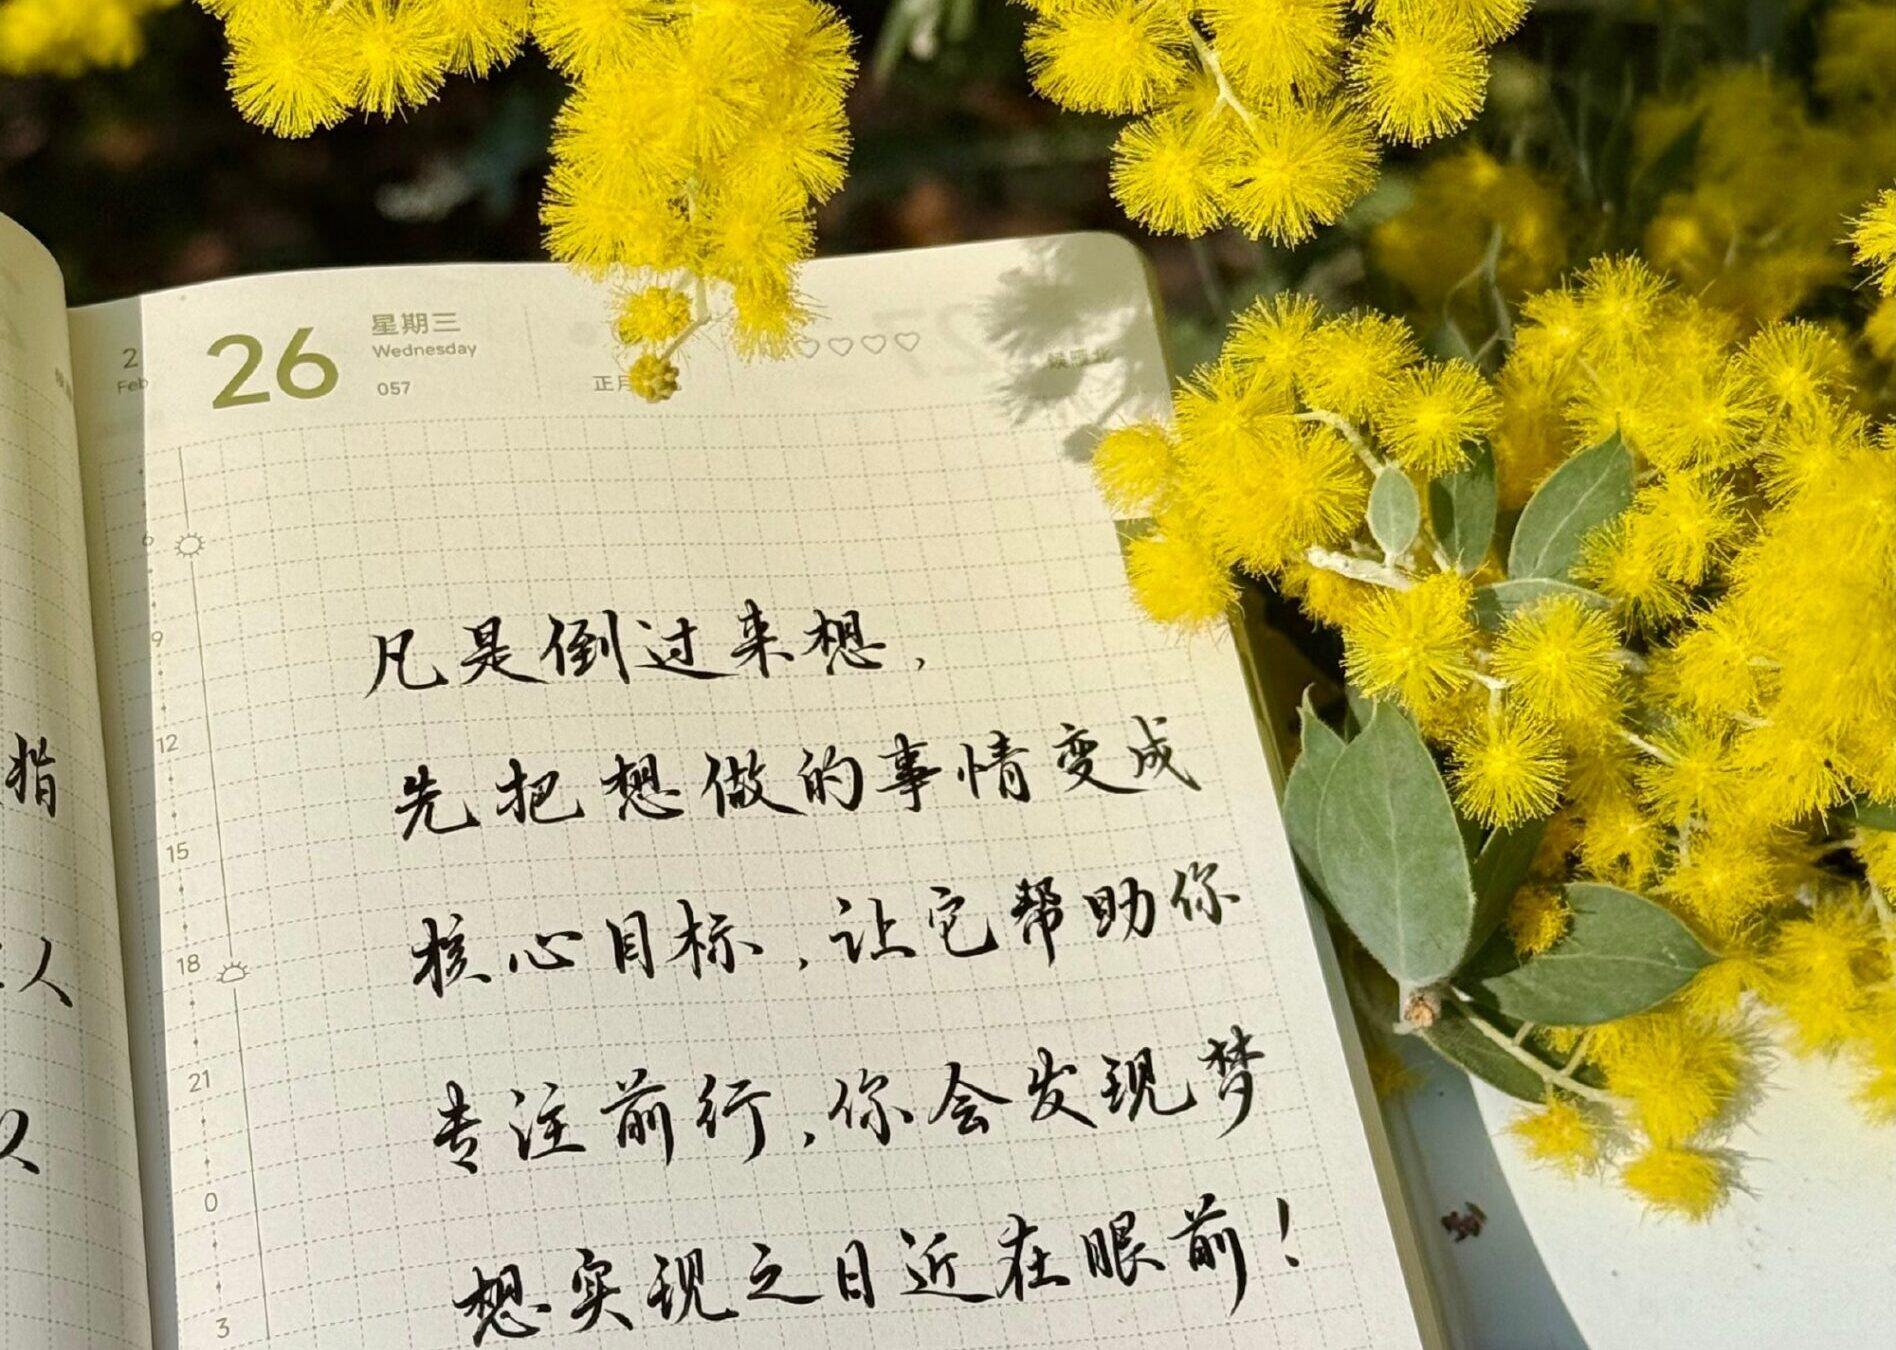 指
人
2
Feb
26
星期三
Wednesday
057
正月
6
9
12
15
18
21
0
3
凡是倒过来想,
先把想做的事情变成
核心目标,让它帮助你
专注前行,你会发现梦
想实现之日近在眼前!